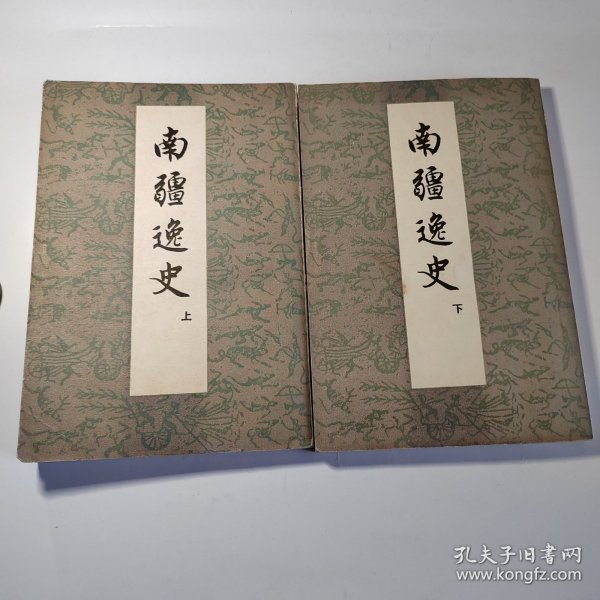 南疆逸史
上
南疆逸史
下
孔夫子旧书网
www.kongfz.com